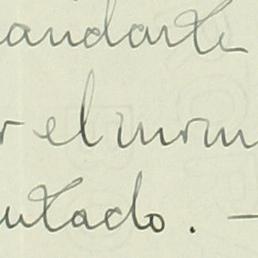 andante
r el mom
utado. –